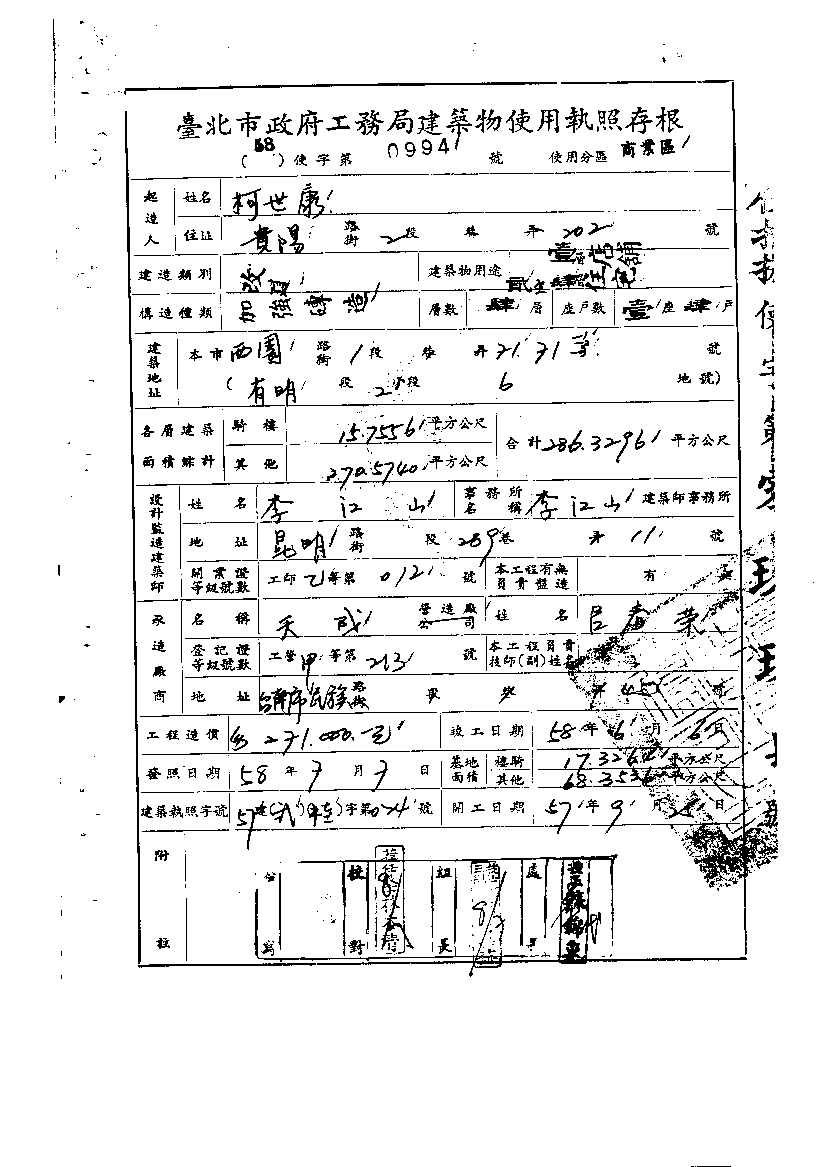 臺北市政府工務局建築物使用執照存根
(58)使字第0994號 使用分區 商業區
起造人 姓名 柯世康
住址 貴陽路街2段巷弄202號
建造類別 改 建築物用途 壹層店舖 貳至肆層住宅
構造種類 加強磚造 層數 肆層 座戶數 壹座肆戶
建築地址 本市西園路街1段巷弄 號
(有明段2小段6地號)
各層建築面積綜計 騎樓 15.7556平方公尺 合計286.3296平方公尺
其他 270.5740平方公尺
設計監造建築師 姓名 李江山 事務所名稱 李江山建築師事務所
地址 昆明路街段289巷弄11號
開業證等級號數 工師乙等第012號 本工程有無負責監造 有
承造廠商 名稱 天成營造廠公司 姓名 呂春榮
登記證等級號數 工營甲等第213號 本工程負責技師(副)姓名
地址 民族路街
工程造價 271.000.元 竣工日期 58年6月6日
發照日期 58年7月7日 基地面積 樓騎 平方公尺
其他 68.3536平方公尺
建築執照字號 57建()()字第024號 開工日期 57年9月25日
附註 繕寫 校對 組長 處長